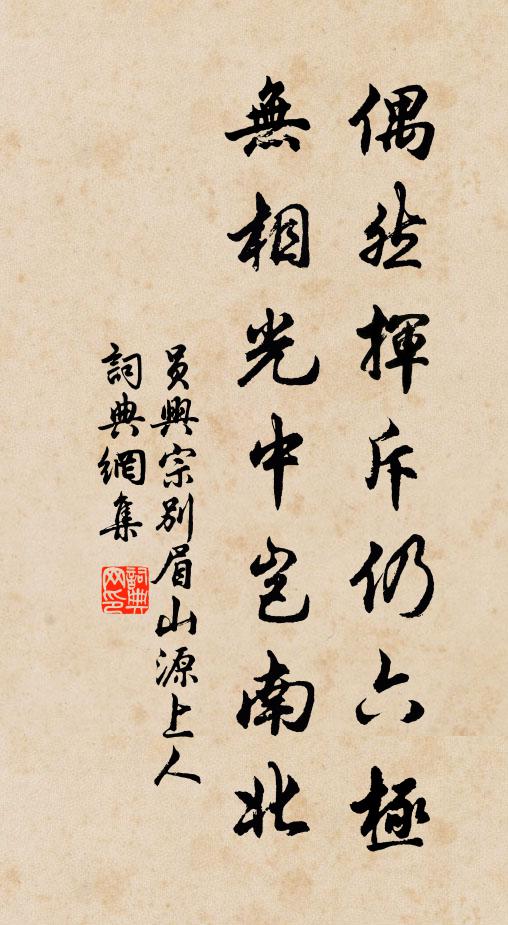 偶然揮斥仍六極
無相光中豈南北
員興宗別眉山源上人
詞典網集
詞典网印